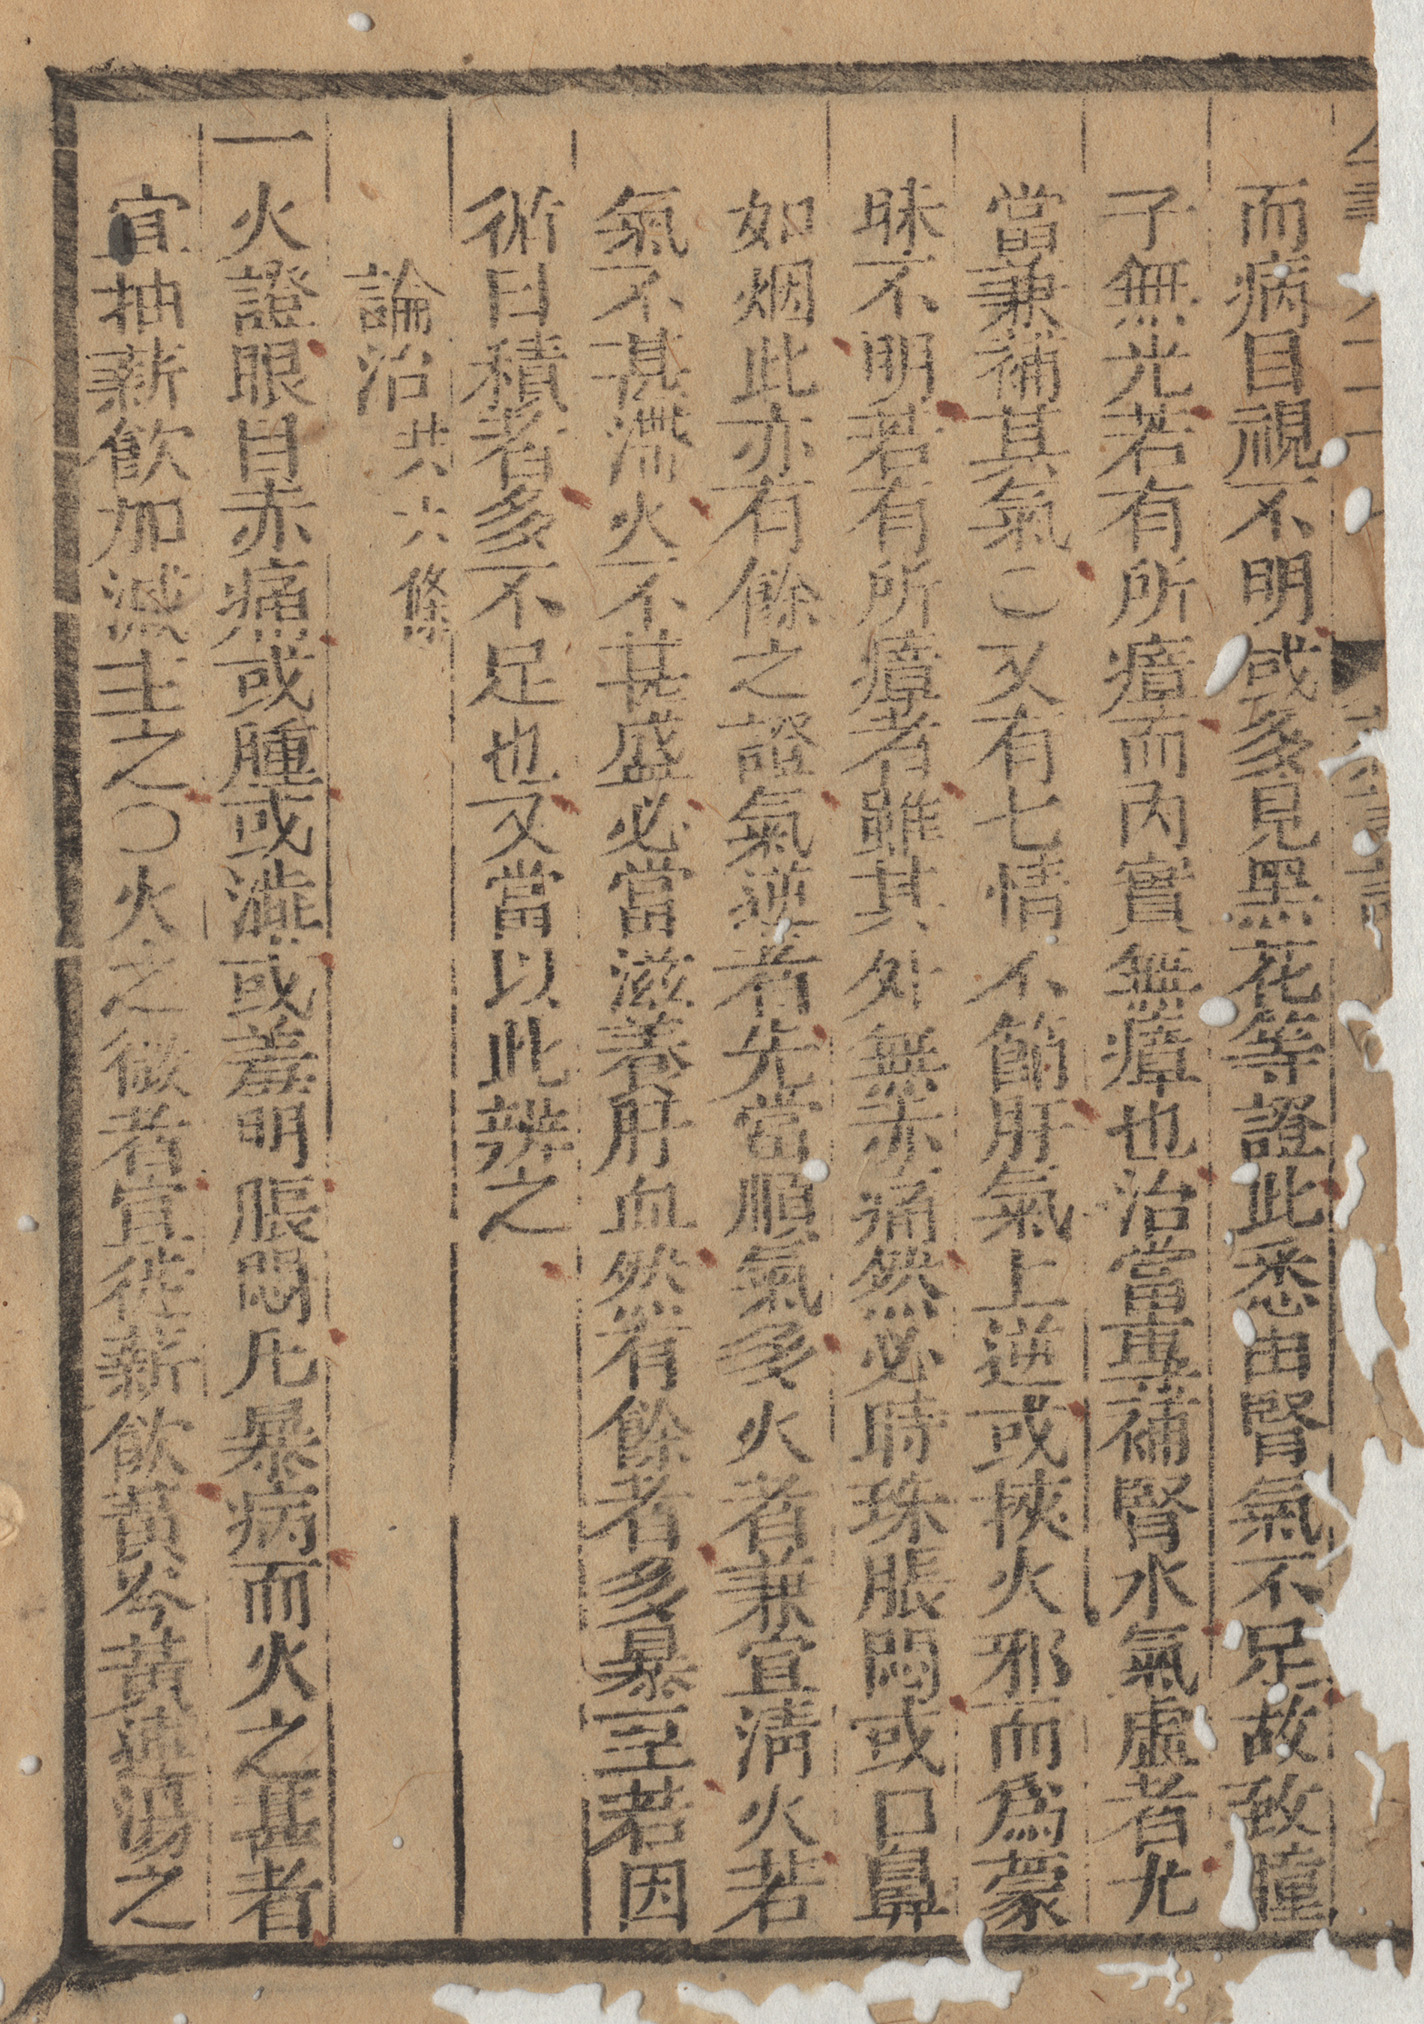 而病目視不明或多見黑花等證此悉由腎氣不足故致瞳
子無光若有所瘴而內實無瘴也治當專補腎水氣虛者尤
當兼補其氣〇又有七情不節肝氣上逆或挾火邪而為蒙
昧不明若有所瘴者雖其外無赤痛然必時珠脹悶或口鼻
如烟此亦有餘之證氣逆者先當順氣多火者兼宜清火若
氣不甚滯火不甚盛必當滋養肝血然有餘者多暴至若因
循日積者多不足也又當以此辨之
論治共六條
一火證眼目赤痛或腫或澁或羞明脹悶凡暴病而火之甚者
宜抽薪飲加減主之〇火之微者宜徙薪飲黃芩黃連湯之